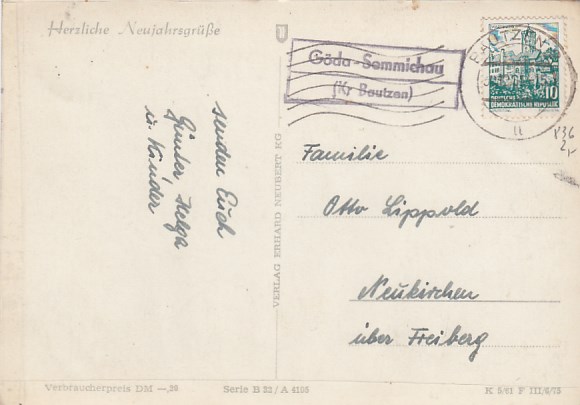 Herzliche Neujahrsgrüße
senden Euch
Günter, Helga
u. Kinder
VERLAG ERHARD NEUBERT KG
Göda-Semmichau
(Kr Bautzen)
BAUTZEN
10
DEMOKRATISCHE REPUBLIK
Familie
Otto Lippold
Neukirchen
über Freiberg
Verbraucherpreis DM —,20
Serie B 32/A 4186
K 5/61 F III/6/73